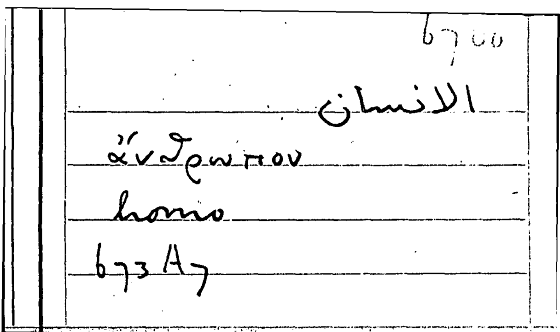 6700
الانسان
ἄνθρωπον
homo
673 A7